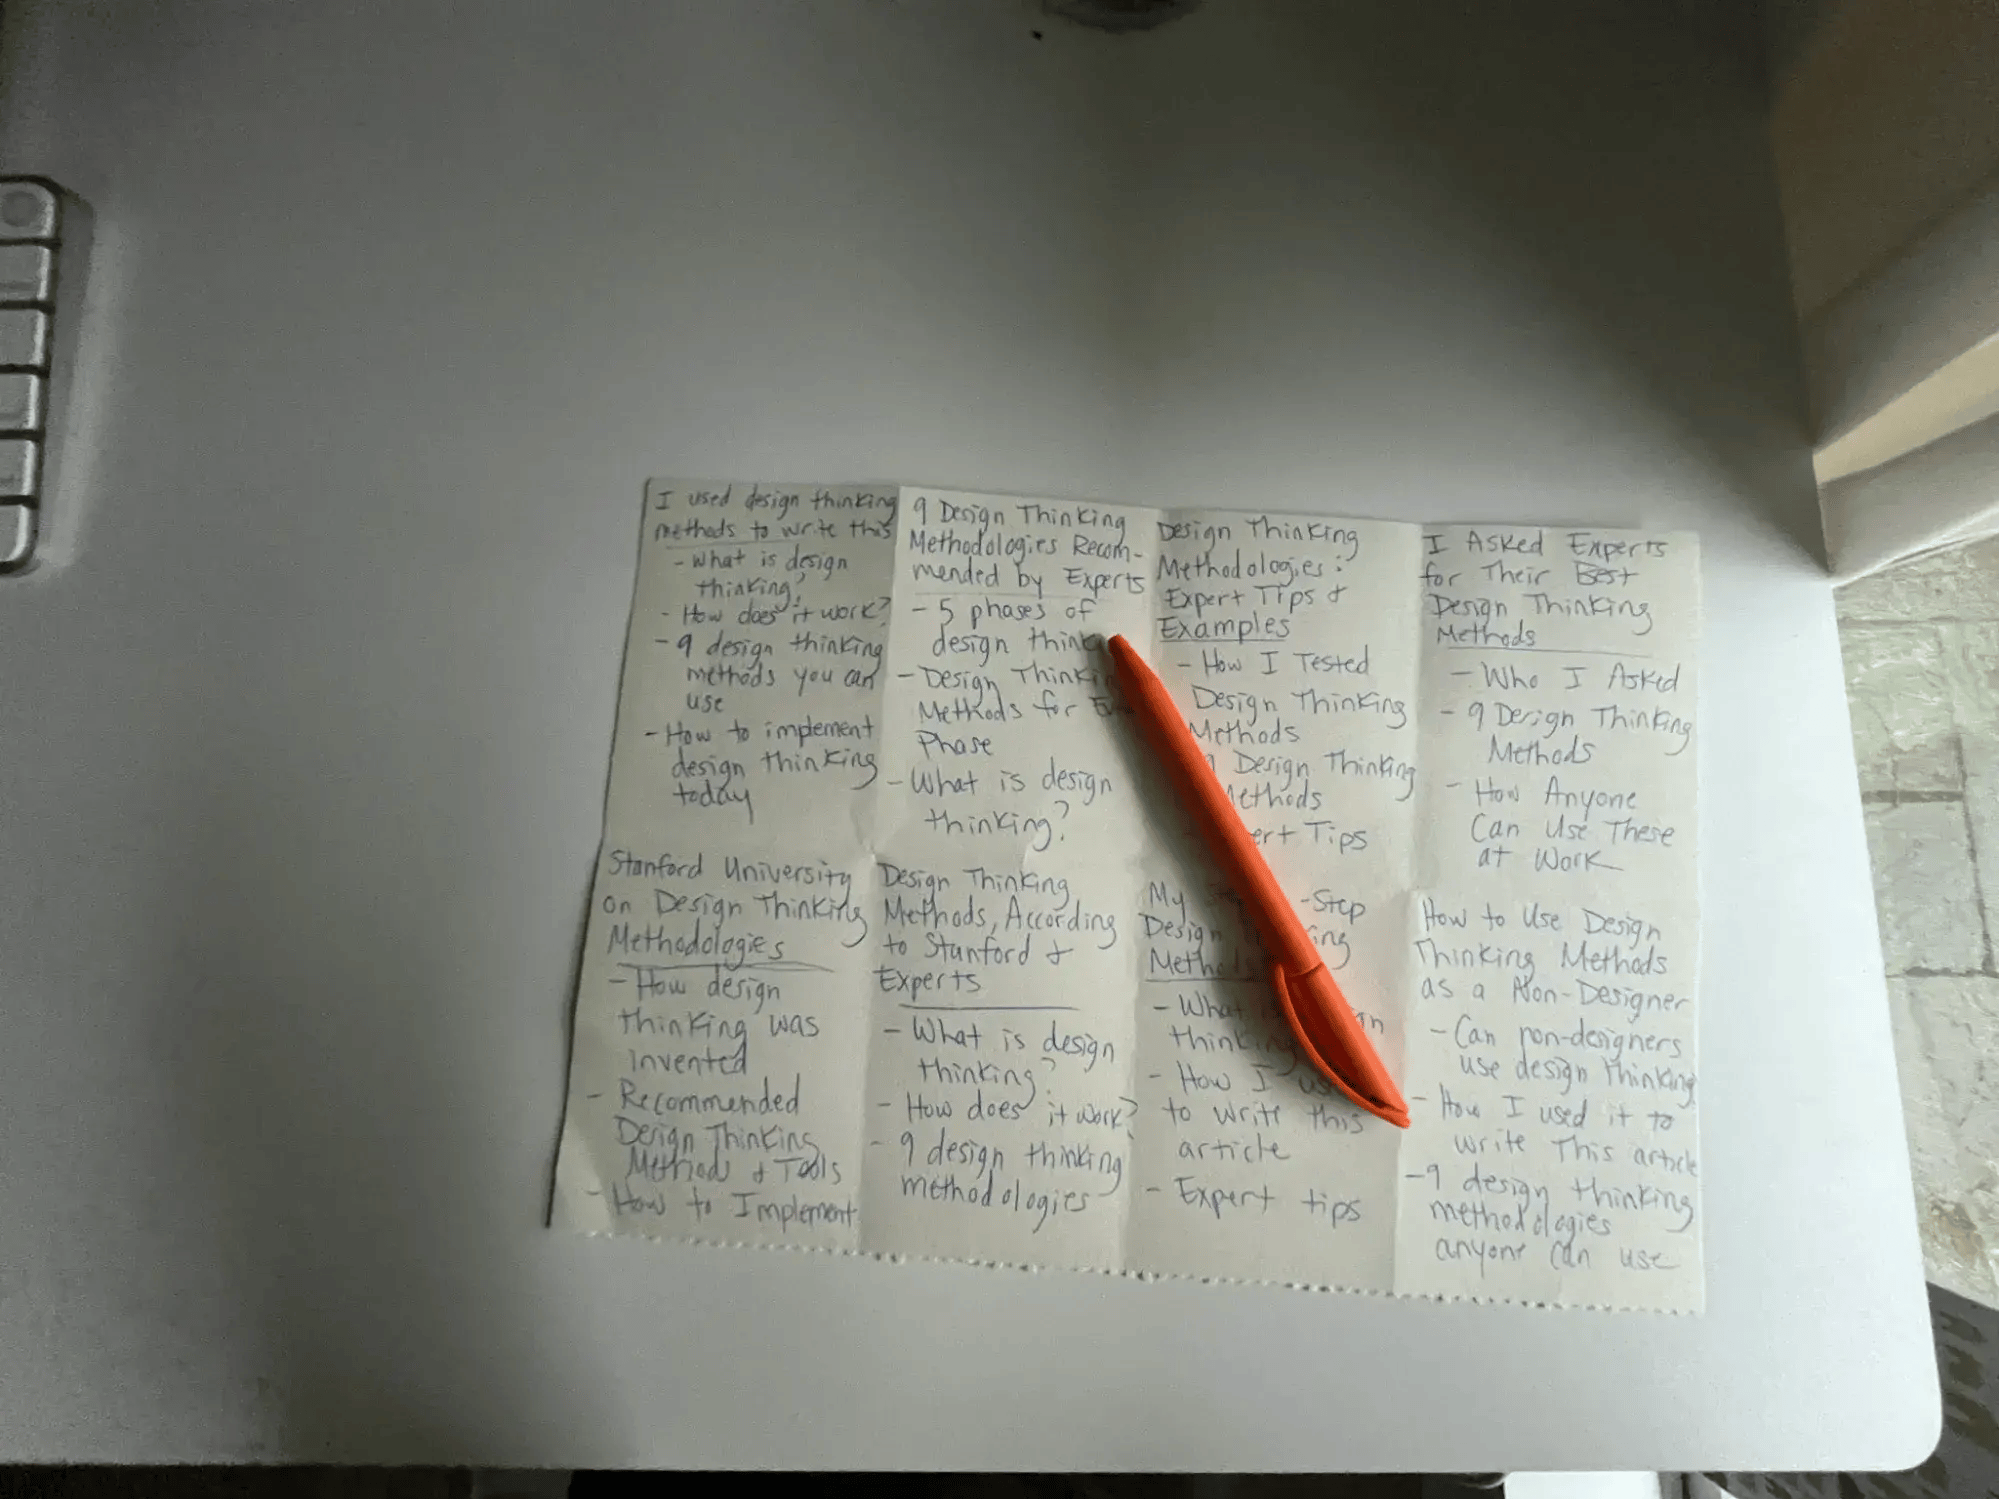 I used design thinking
methods to write this
- What is design
thinking?
- How does it work?
- 9 design thinking
methods you can
use
- How to implement
design thinking
today
9 Design Thinking
Methodologies Recom-
mended by Experts
- 5 phases of
design
- Design
Methods for
Phase
- What is design
thinking?
Design Thinking
Methodologies:
Expert Tips &
Examples
- How I Tested
Design Thinking
Methods
Design Thinking
Tips
I Asked Experts
for Their Best
Design Thinking
Methods
- Who I Asked
- 9 Design Thinking
Methods
- How Anyone
Can Use These
at Work
Stanford University
on Design Thinking
Methodologies
- How design
thinking was
invented
- Recommended
Design Thinking
Methods & Tools
- How to Implement
Design Thinking
Methods, According
to Stanford &
Experts
- What is design
thinking?
- How does it work?
- 9 design thinking
methodologies
My -Step
Design
- What
- How I
to write this
article
- Expert tips
How to Use Design
Thinking Methods
as a Non-Designer
- Can non-designers
use design thinking
- How I used it to
write This article
- 9 design thinking
methodologies
anyone can use